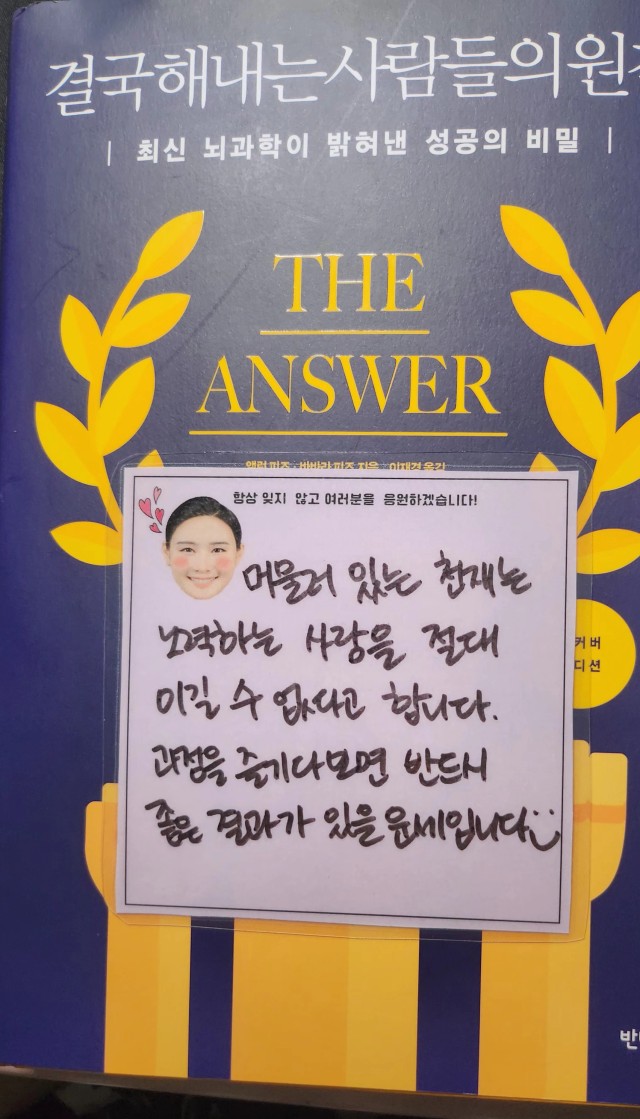 결국해내는사람들의원
최신 뇌과학이 밝혀낸 성공의 비밀
THE
ANSWER
앨런 피즈 · 바바라 피즈 지음 이재경 옮김
항상 잊지 않고 여러분을 응원하겠습니다!
머물러 있는 천재는
노력하는 사람을 절대
이길 수 없다고 합니다.
과정을 즐기다보면 반드시
좋은 결과가 있을 운세입니다
커버
디션
반